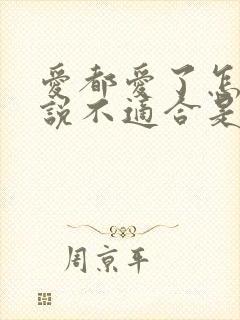 愛都愛了怎
說不適合是
周京平